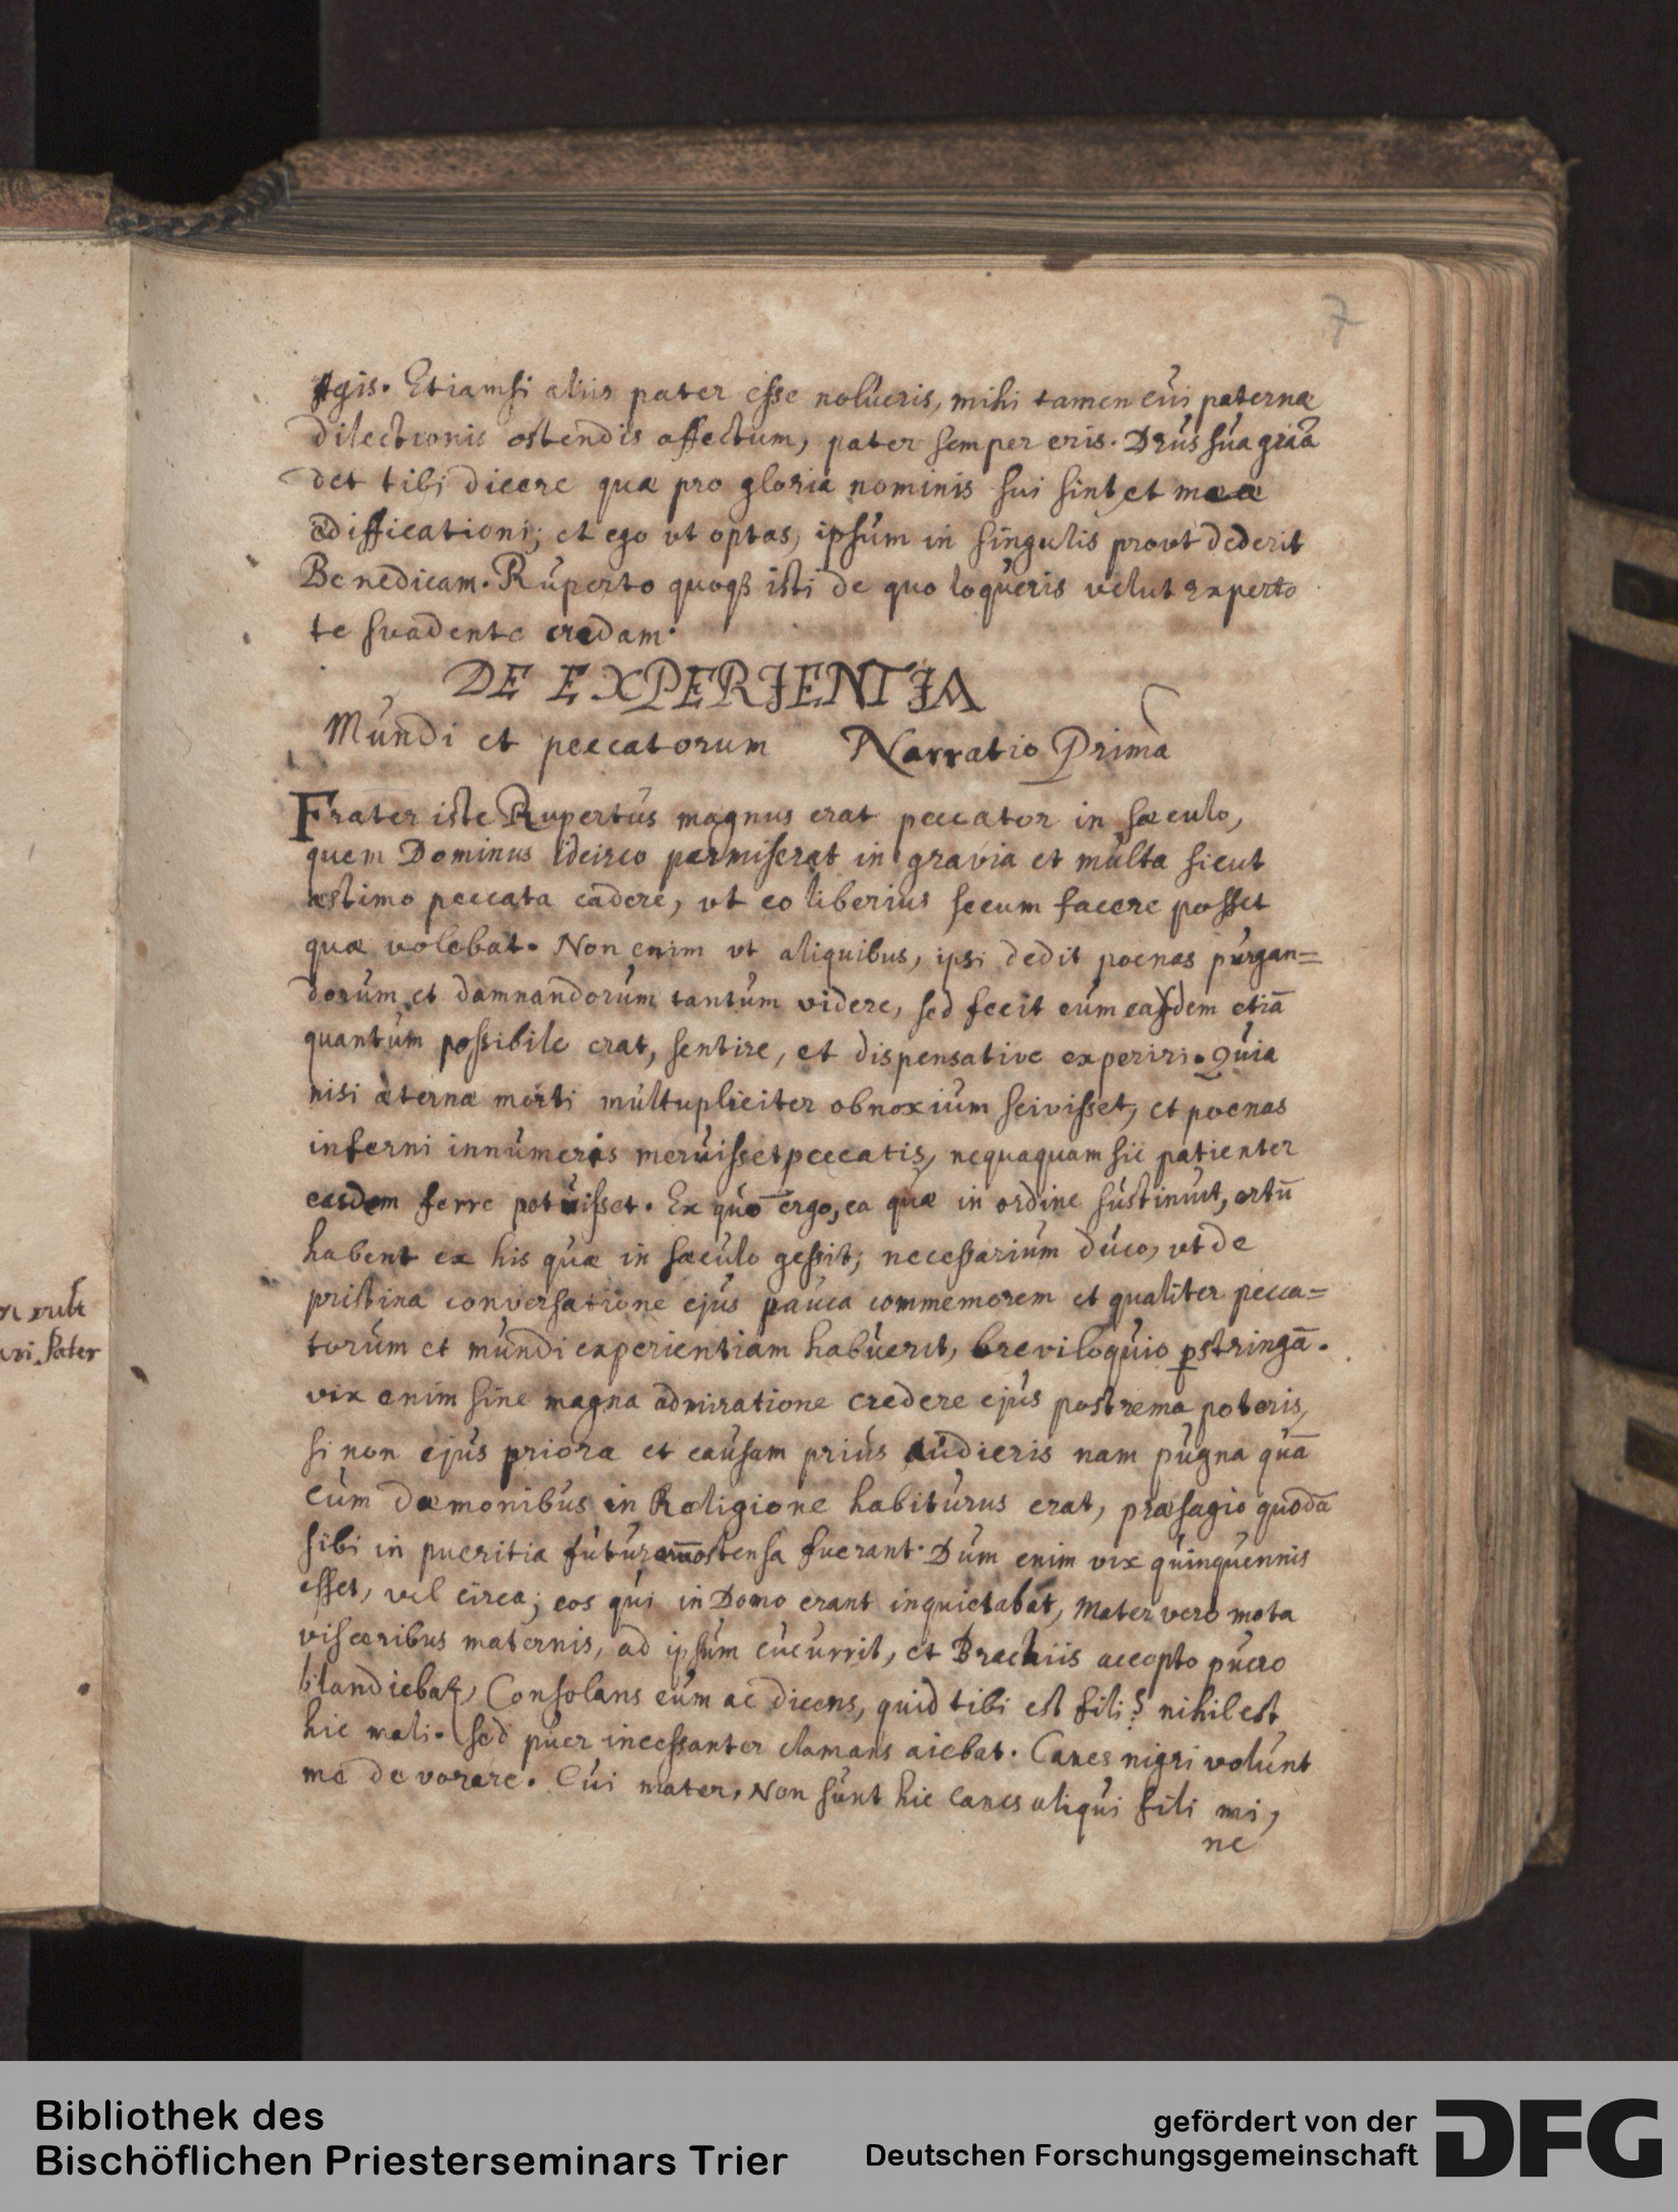 7
Agis. Etiamsi aliis pater esse nolueris, mihi tamen cui paternæ
dilectionis ostendis affectum, pater semper eris. Deus sua grãa
det tibi dicere quæ pro gloria nominis sui sint et meæ
ædifficationi; et ego vt optas, ipsum in singulis provt dederit
Benedicam. Ruperto quoqȝ isti de quo loqueris velut experto
te suadente credam.
DE EXPERIENTIA
Mundi et peccatorum Narratio Prima
Frater iste Rupertus magnus erat peccator in sæculo,
quem Dominus idcirco permiserat in gravia et multa sicut
æstimo peccata cadere, vt eo liberius secum facere posset
quæ volebat. Non enim vt aliquibus, ipsi dedit poenas purgan=
dorum et damnandorum tantum videre, sed fecit eum easdem etiã
quantum possibile erat, sentire, et dispensative experiri. Quia
nisi æternæ morti multupliciter obnoxium scivisset, et poenas
inferni innumeris meruisset peccatis, nequaquam sic patienter
easdem ferre potuisset. Ex quo ergo, ea quæ in ordine sustinuit, ortũ
habent ex his quæ in sæculo gessit; necessarium duco, vt de
pristina conversatione ejus pauca commemorem et qualiter pecca=
torum et mundi experientiam habuerit, breviloquio pstringã.
vix enim sine magna admiratione credere ejus postrema poteris,
si non ejus priora et causam prius audieris nam pugna quã
cum dæmonibus in Religione habiturus erat, præsagio quodã
sibi in pueritia futurorũ ostensa fuerant. Dum enim vix quinquennis
esset, vel circa; eos qui in Domo erant inquietabat, Mater vero mota
visceribus maternis, ad ipsum cucurrit, et Brachiis accepto puero
blandiebat, Consolans eum ac dicens, quid tibi est fili? nihil est
hic mali. sed puer incessanter clamans aiebat. Canes nigri volunt
me devorare. Cui mater, Non sunt hic canes aliqui fili mi,
ne
Pater
Bibliothek des
Bischöflichen Priesterseminars Trier
gefördert von der
Deutschen Forschungsgemeinschaft
DFG